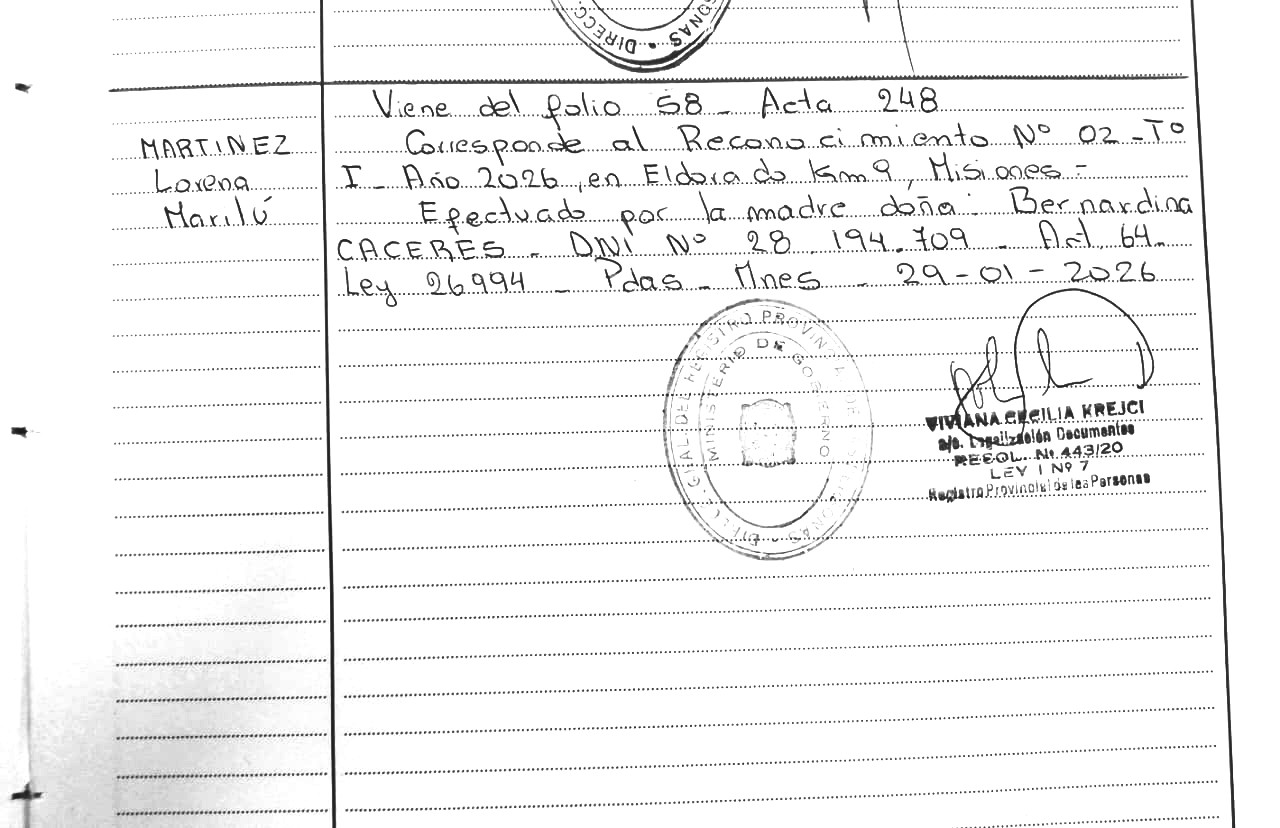 DIRECC. ONAS
Viene del folio 58 - Acta 248
MARTINEZ
Lorena
Marilú
Corresponde al Reconocimiento Nº 02 - Tº
I - Año 2026, en Eldorado Km 9, Misiones -
Efectuado por la madre doña: Bernardina
CACERES - DNI Nº 28.194.709 - Act. 64-
Ley 26994 - Pdas - Mnes - 29-01-2026
DIRECC. GRAL. DEL REGISTRO PROVINCIAL DE LAS PERSONAS
MINISTERIO DE GOBIERNO
VIVIANA CECILIA KREJCI
a/c. Legalización Documentos
RESOL. Nº 443/20
LEY I Nº 7
Registro Provincial de las Personas